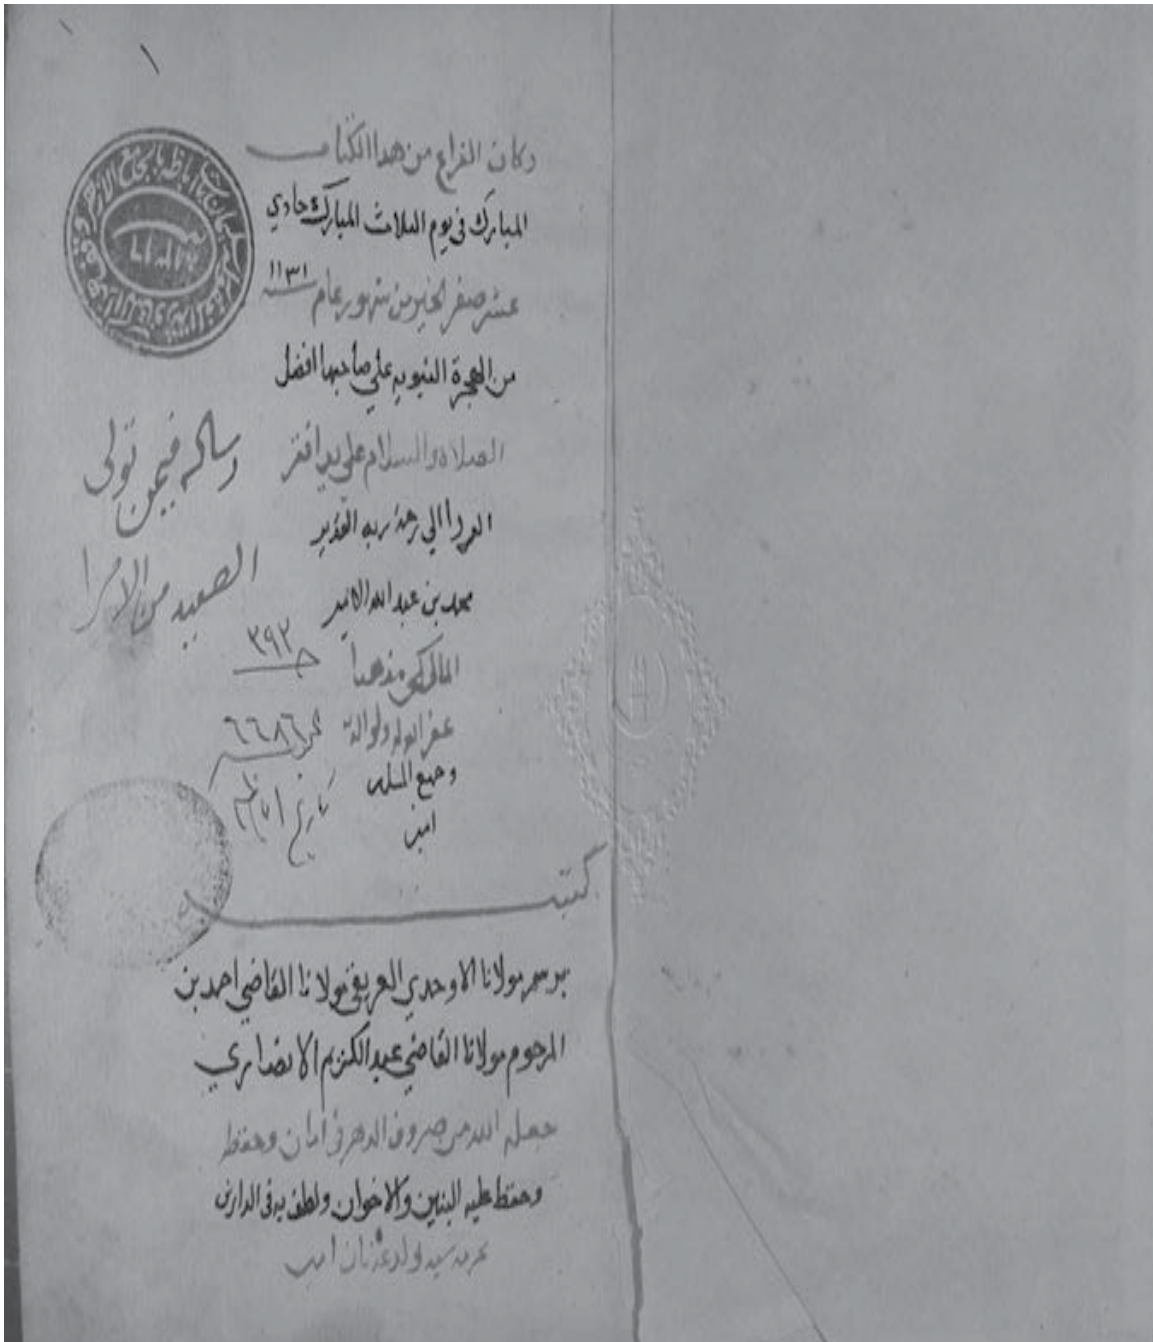 ١
وكان الفراغ من هذا الكتاب
المبارك في يوم الثلاث المبارك حادي
عشر صفر الخير من شهور عام ١١٣١
من الهجرة النبويه علي صاحبها افضل
الصلاه والسلام علي يد افقر
الورا الي رحمة ربه القدير
محمد بن عبد الله الامير
المالكي مذهبا
غفر الله له ولوالديه
وجميع المسلمين
امين
رساله فيمن تولى
الصعيد من الامرا
٣٩٢
٦٦٨٦
تاريخ اباظه
كتبت
برسم مولانا الاوحدي العريقي مولانا القاضي احمد بن
المرحوم مولانا القاضي عبد الكريم الانصاري
جعله الله من صروف الدهر في امان وحفظه
وحفظ عليه البنين والاخوان ولطف به في الدارين
بحرمة سيد ولد عدنان امين